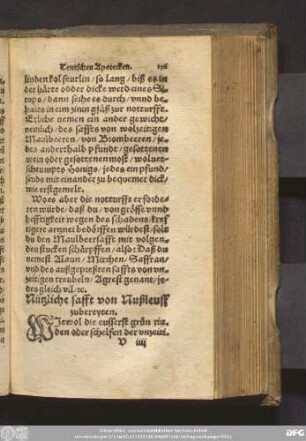 Teutschen Apotecken.
linden kol feurlin / so lang / biß es in
der härte odder dicke werd eines Si-
rops / dann seihe es durch / vnnd be-
halts in eim zinin gfäß zur notturfft.
Etliche nemen ein ander gewicht /
nemlich / des saffts von wolzeitigen
Maulbeeren / von Brombeeren / je-
des anderthalb pfundt / gesottenen
wein oder gesottenenmost / wolver-
scheumpts Honigs / jedes ein pfund /
seuds mit einander zu bequemer dick /
wie erstgemelt.
Wo es aber die notturfft erforde-
ren würde / daß du / von grösse vnnd
hefftigkeit wegen des schadens / kref
tigere artznei bedörffen würdest / solt
du den Maulbeersafft mit volgen-
den stucken schärpffen / also: Daß du
nemest Alaun / Mirrhen / Saffran /
vnd des außgepreßten saffts von vn-
zeitigen treubeln / Agrest genant / je-
des gleich vil / ꝛc.
Nützliche safft von Nußleuff
zubereyten.
Wiewol die eusserst grün rin-
den oder schelfen der vnzeiti-
V iiij